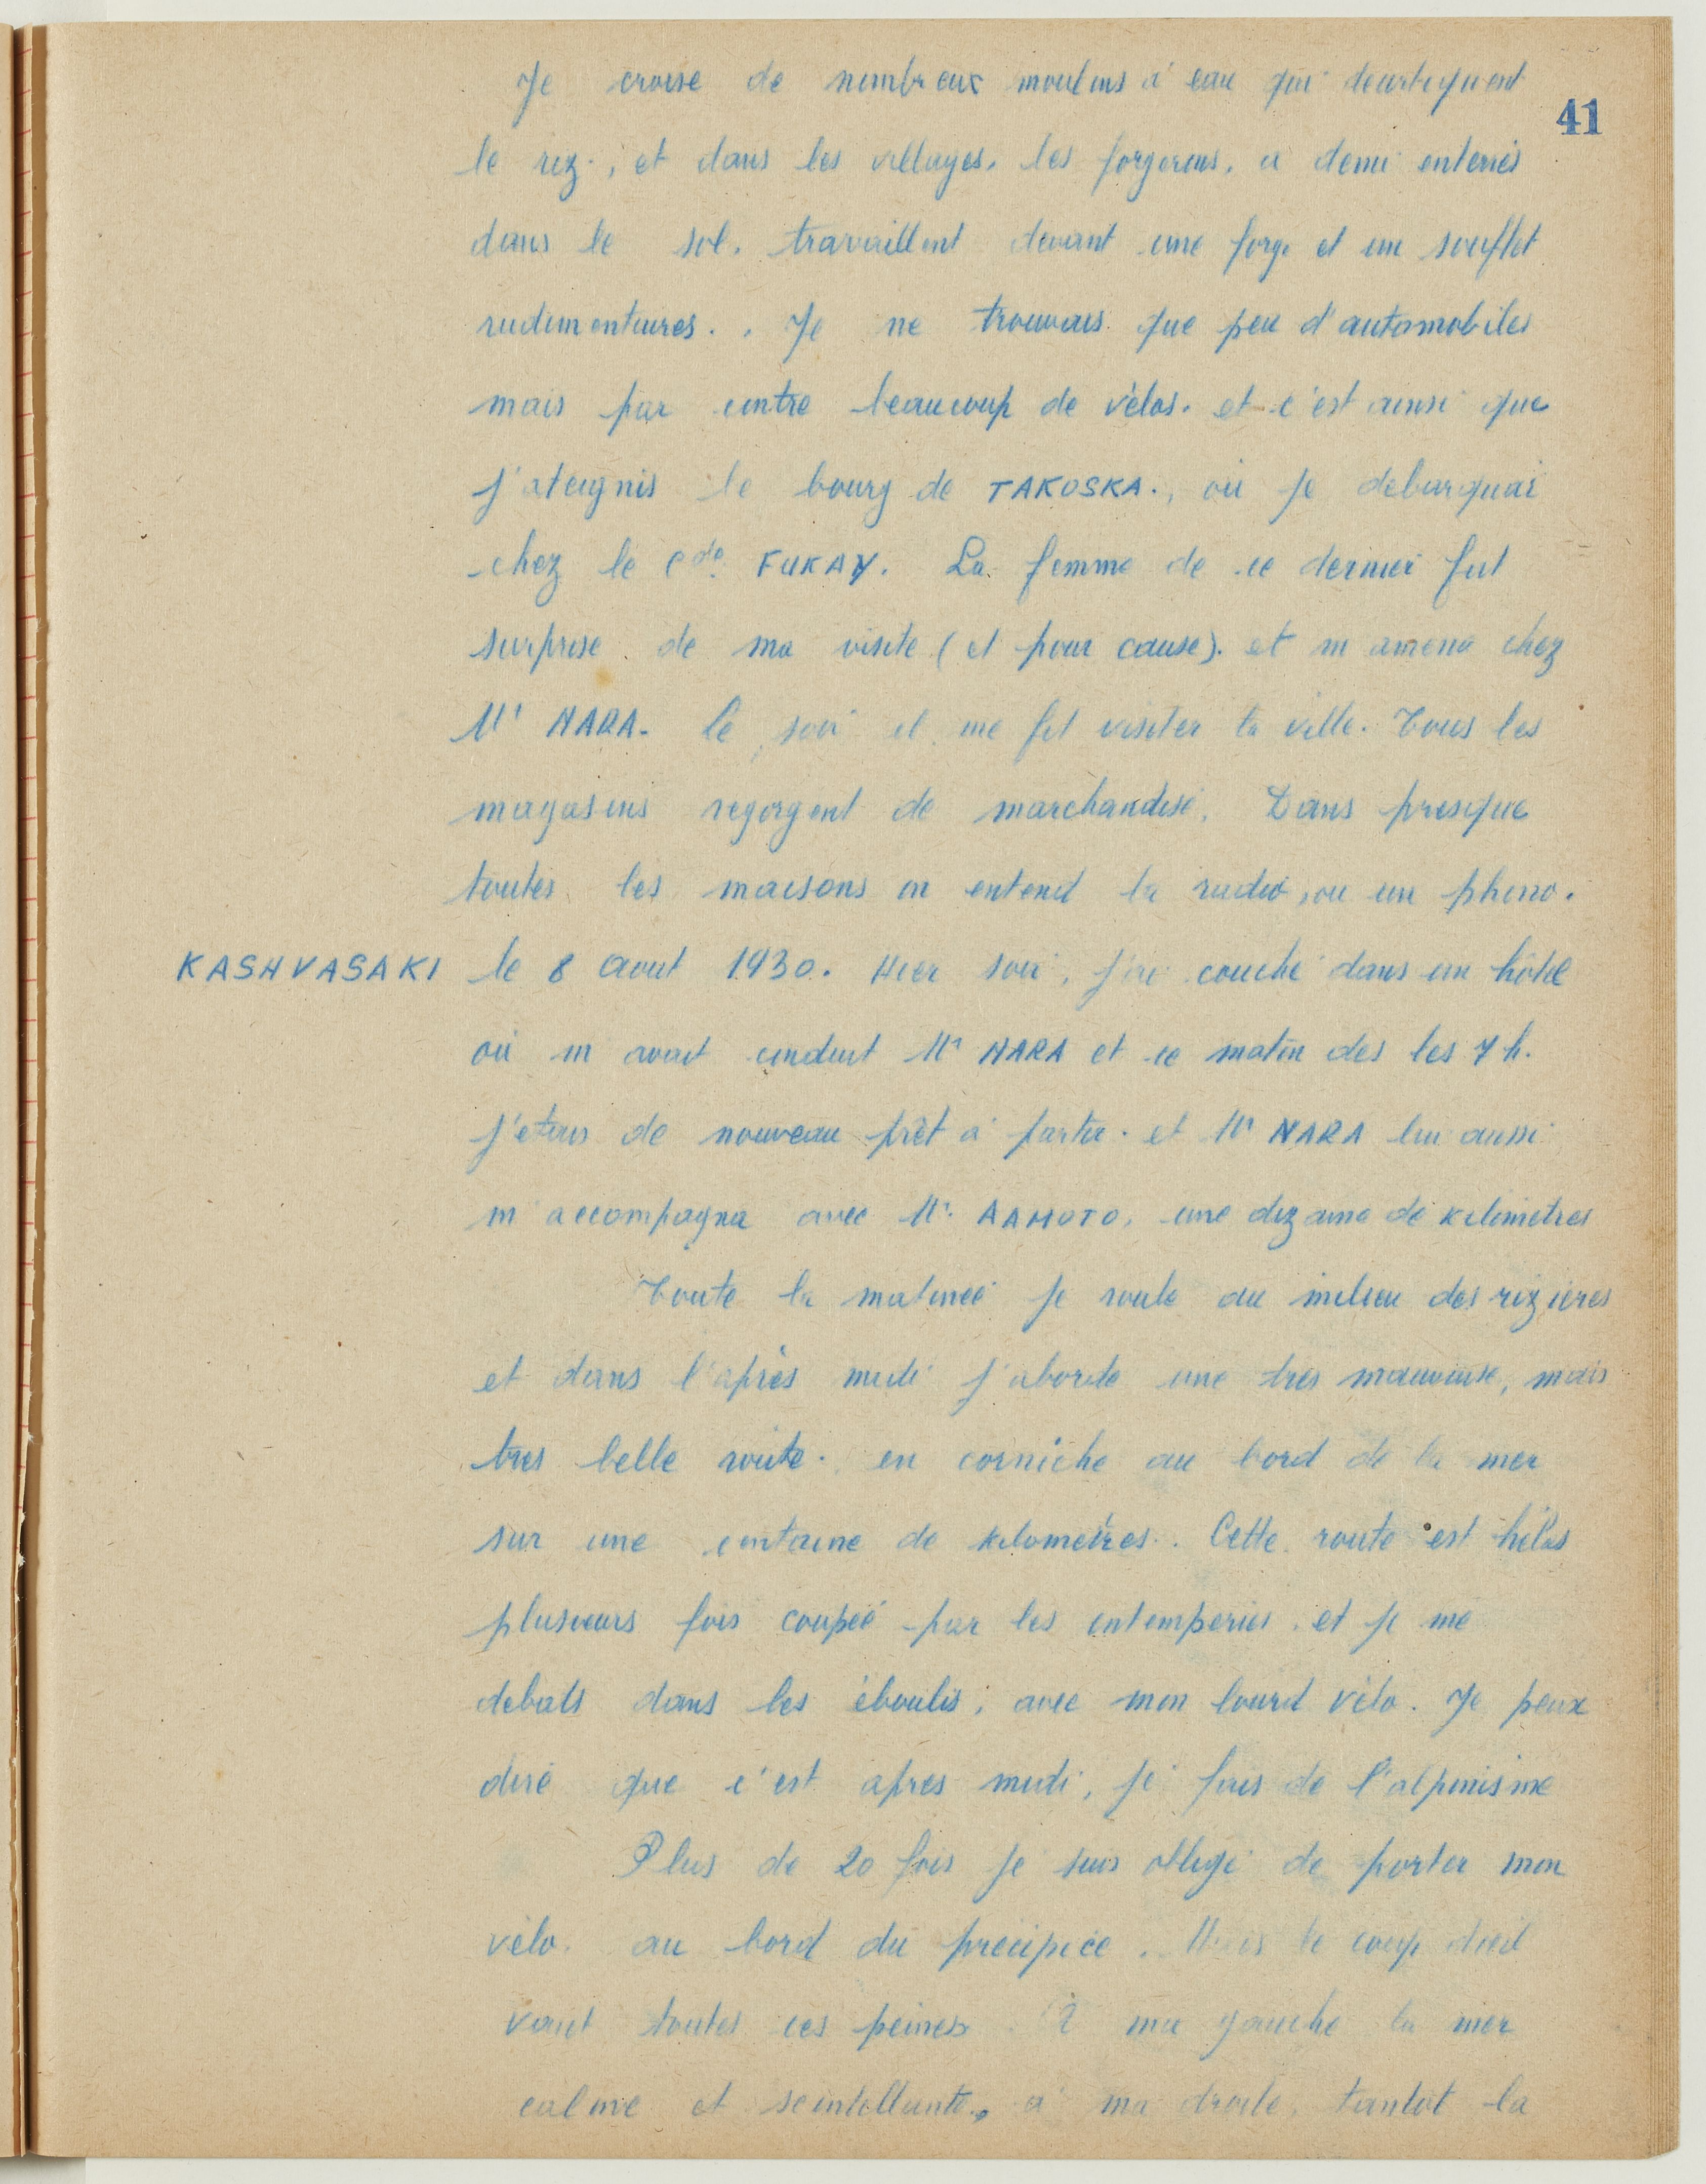 41
Je croise de nombreux moulins à eau qui decortiquent
le riz., et dans les villages, les forgerons, a demi enterrés
dans le sol. travaillent devant une forge et un soufflet
rudimentaires.. Je ne trouvais que peu d'automobiles
mais par contre beaucoup de vélos. et c'est ainsi que
j'ateignis le bourg de TAKOSKA., où je debarquai
chez le Cde FUKAY. La femme de ce dernier fut
surprise de ma visite (et pour cause). et m amena chez
Mr NARA. le soir il me fit visiter la ville. Tous les
magasins regorgent de marchandise. Dans presque
toutes les maisons on entend la radio, ou un phono.
KASHVASAKI le 8 aout 1930. Hier soir, j'ai couché dans un hôtel
où m avait conduit Mr NARA et ce matin des les 7 h.
j'etais de nouveau prêt à partir. et Mr NARA lui aussi
m'accompagna avec Mr. AAMOTO, une dizaine de kilometres
Toute la matinée je roule au milieu des rizieres
et dans l'après midi j'aborde une tres mauvaise, mais
tres belle route. en corniche au bord de la mer
sur une centaine de kilometres. Cette route est hélas
plusieurs fois coupée par les intemperies. et je me
debats dans les éboulis, avec mon lourd vélo. Je peux
dire que c'est apres midi, je fais de l'alpinisme
Plus de 20 fois je suis obligé de porter mon
vélo. au bord du precipice. Mais le coup d'œil
vaut toutes ces peines. À ma gauche la mer
calme et scintillante, a ma droite, tantot la